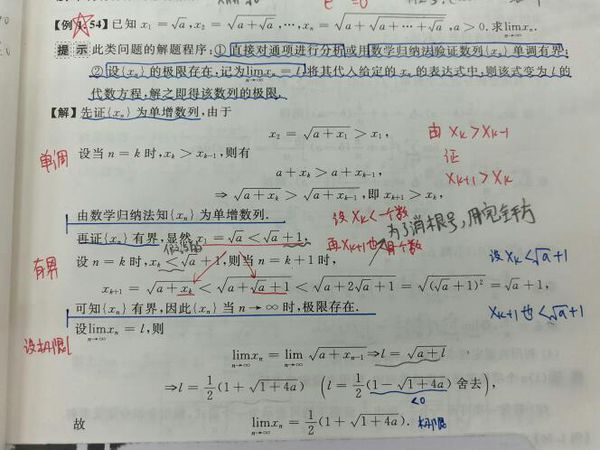 【例1.54】已知 x₁=√a, x₂=√(a+√a), …, xₙ=√(a+√(a+…+√a)), a>0. 求lim_{n→∞}xₙ.
提示 此类问题的解题程序:①直接对通项进行分析或用数学归纳法验证数列{xₙ}单调有界;
②设{xₙ}的极限存在,记为lim_{n→∞}xₙ=l将其代入给定的xₙ的表达式中,则该式变为l的
代数方程,解之即得该数列的极限.
【解】先证{xₙ}为单增数列,由于
x₂=√(a+x₁)>x₁,
由 Xₖ>Xₖ₋₁
单调
设当n=k时,xₖ>xₖ₋₁,则有
证
a+xₖ>a+xₖ₋₁,
Xₖ₊₁>Xₖ
⇒√(a+xₖ)>√(a+xₖ₋₁),即xₖ₊₁>xₖ,
由数学归纳法知{xₙ}为单增数列.
设Xₖ<一个数
为了消根号,用完全平方
再证{xₙ}有界,显然x₁=√a<√a+1,
再Xₖ₊₁也<同个数
有界
设n=k时,xₖ<√a+1,则当n=k+1时,
设Xₖ<√a+1
xₖ₊₁=√(a+xₖ)<√(a+√a+1)<√(a+2√a+1)=√((√a+1)²)=√a+1,
可知{xₙ}有界,因此{xₙ}当n→∞时,极限存在.
Xₖ₊₁也<√a+1
设极限l
设lim_{n→∞}xₙ=l,则
lim_{n→∞}xₙ=lim_{n→∞}√(a+xₙ₋₁)⇒l=√(a+l)
⇒l=1/2(1+√(1+4a)) (l=1/2(1-√(1+4a))舍去),
<0
故 lim_{n→∞}xₙ=1/2(1+√(1+4a)). 极限